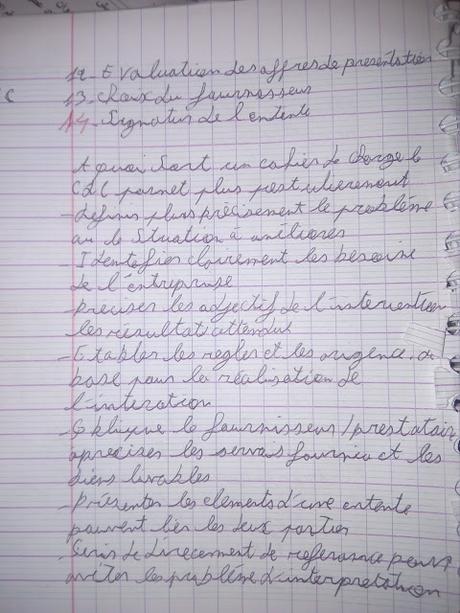 12- Evaluation des offres de presentation
13- choux du fournisseur
14- Signatur de l'entente
A quoi sort un cahier de charge le
CDC parmet plus particulierement
- définir plus précisement le problème
au le Situation à améliorer
- Identifier clairement les besoins
de l'entreprise
- préciser les adjectif de l'intervention
les résultats attendus
- Etablir les règles et les exigence de
base pour la réalisation de
l'interation
- Expliquer le fournisseur / prestataire
a préciser les servais fournis et les
biens livrables
- présenter les elements d'une entente
pouvent lier les deux partier
- Servir de document de reference pour
éviter les problème d'interpretation